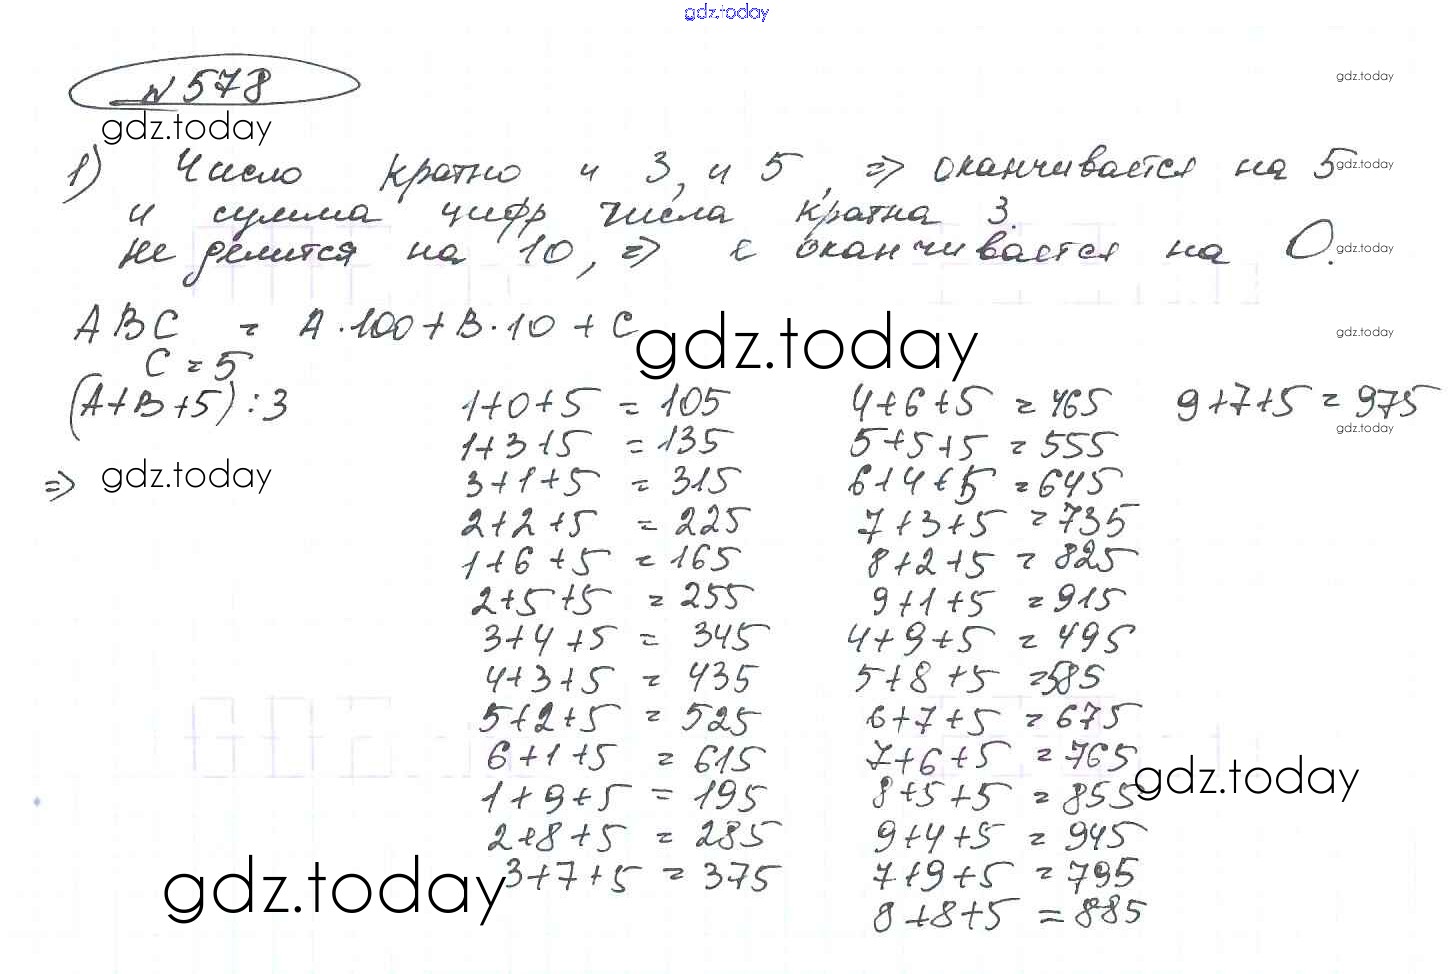 gdz.today
№ 578
gdz.today
gdz.today
1) Число кратно и 3, и 5, => оканчивается на 5
gdz.today
и сумма цифр числа кратна 3.
не делится на 10, => оканчивается на 0.
gdz.today
ABC = A·100+B·10+C
gdz.today
gdz.today
C = 5
(A+B+5):3
1+0+5 = 105
4+6+5 = 465
9+7+5 = 975
gdz.today
1+3+5 = 135
5+5+5 = 555
=>
gdz.today
3+1+5 = 315
6+4+5 = 645
2+2+5 = 225
7+3+5 = 735
1+6+5 = 165
8+2+5 = 825
2+5+5 = 255
9+1+5 = 915
3+4+5 = 345
4+9+5 = 495
4+3+5 = 435
5+8+5 = 585
5+2+5 = 525
6+7+5 = 675
6+1+5 = 615
7+6+5 = 765
gdz.today
1+9+5 = 195
8+5+5 = 855
2+8+5 = 285
9+4+5 = 945
gdz.today
3+7+5 = 375
7+9+5 = 795
8+8+5 = 885